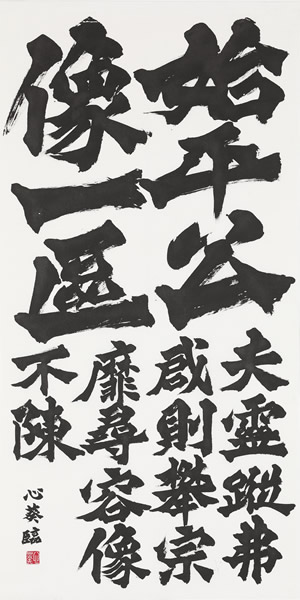 始平公
像一區
夫靈蹤弗
啟則攀宗
靡尋容像
不陳
心葵臨